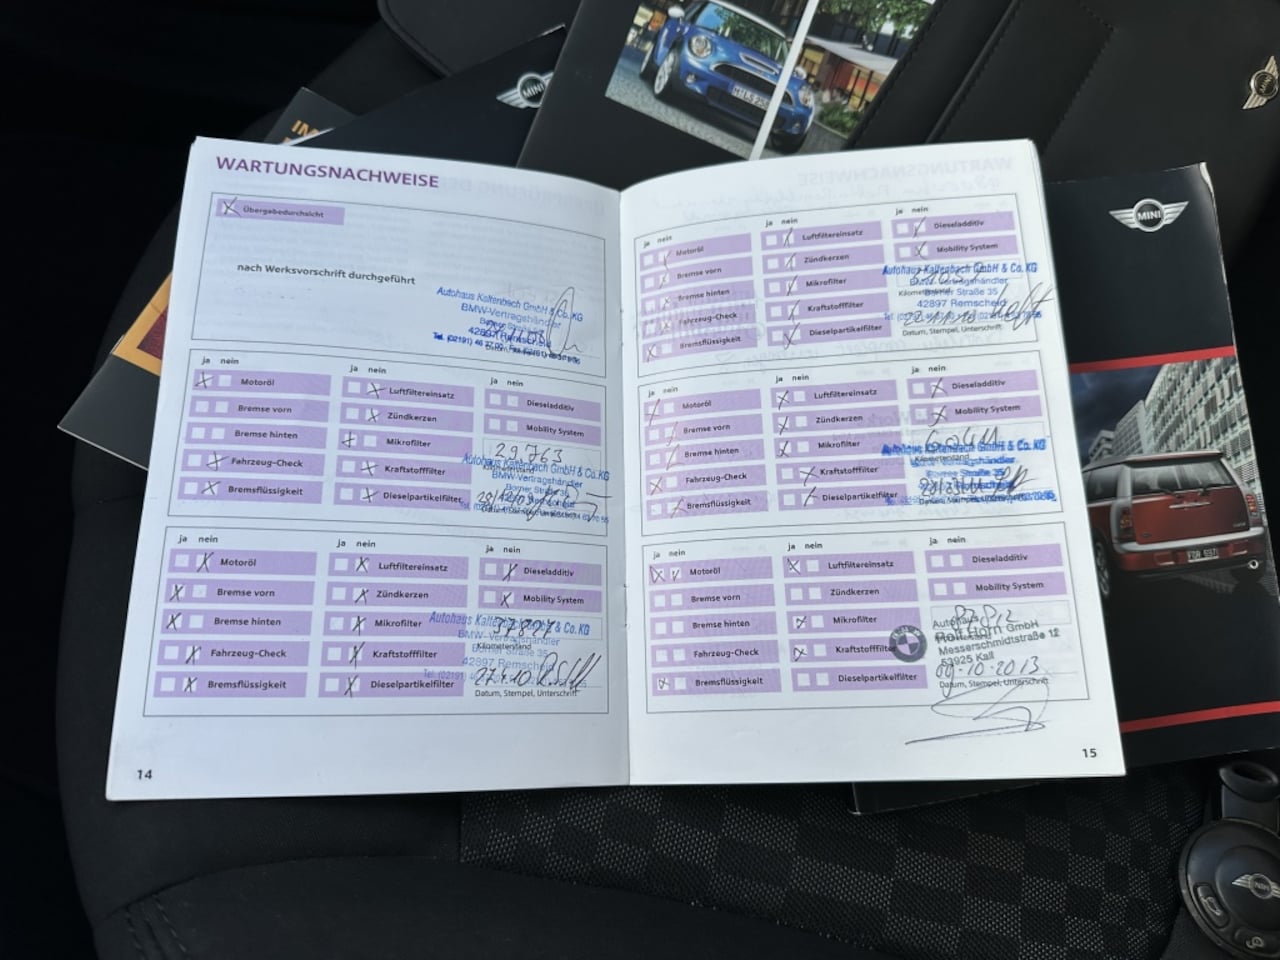 MINI
MINI
WARTUNGSNACHWEISE
Übergabedurchsicht
nach Werksvorschrift durchgeführt
Autohaus Kaltenbach GmbH & Co. KG
BMW-Vertragshändler
42897 Remscheid
ja nein
Motoröl
Bremse vorn
Bremse hinten
Fahrzeug-Check
Bremsflüssigkeit
ja nein
Luftfiltereinsatz
Zündkerzen
Mikrofilter
Kraftstofffilter
Dieselpartikelfilter
ja nein
Dieseladditiv
Mobility System
29.763
Autohaus Kaltenbach GmbH & Co. KG
BMW-Vertragshändler
Borner Straße 35
ja nein
Motoröl
Bremse vorn
Bremse hinten
Fahrzeug-Check
Bremsflüssigkeit
ja nein
Luftfiltereinsatz
Zündkerzen
Mikrofilter
Kraftstofffilter
Dieselpartikelfilter
ja nein
Dieseladditiv
Mobility System
Autohaus Kaltenbach GmbH & Co. KG
BMW-Vertragshändler
Kilometerstand
Borner Straße 35
42897 Remscheid
Datum, Stempel, Unterschrift
14
ja nein
Motoröl
Bremse vorn
Bremse hinten
Fahrzeug-Check
Bremsflüssigkeit
ja nein
Luftfiltereinsatz
Zündkerzen
Mikrofilter
Kraftstofffilter
Dieselpartikelfilter
ja nein
Dieseladditiv
Mobility System
Autohaus Kaltenbach GmbH & Co. KG
BMW-Vertragshändler
Borner Straße 35
42897 Remscheid
Datum, Stempel, Unterschrift
ja nein
Motoröl
Bremse vorn
Bremse hinten
Fahrzeug-Check
Bremsflüssigkeit
ja nein
Luftfiltereinsatz
Zündkerzen
Mikrofilter
Kraftstofffilter
Dieselpartikelfilter
ja nein
Dieseladditiv
Mobility System
Autohaus Kaltenbach GmbH & Co. KG
ja nein
Motoröl
Bremse vorn
Bremse hinten
Fahrzeug-Check
Bremsflüssigkeit
ja nein
Luftfiltereinsatz
Zündkerzen
Mikrofilter
Kraftstofffilter
Dieselpartikelfilter
ja nein
Dieseladditiv
Mobility System
87812
Autohaus
Rolf Horn GmbH
Messerschmidtstraße 12
53925 Kall
09.10.2013
Datum, Stempel, Unterschrift
15
MINI